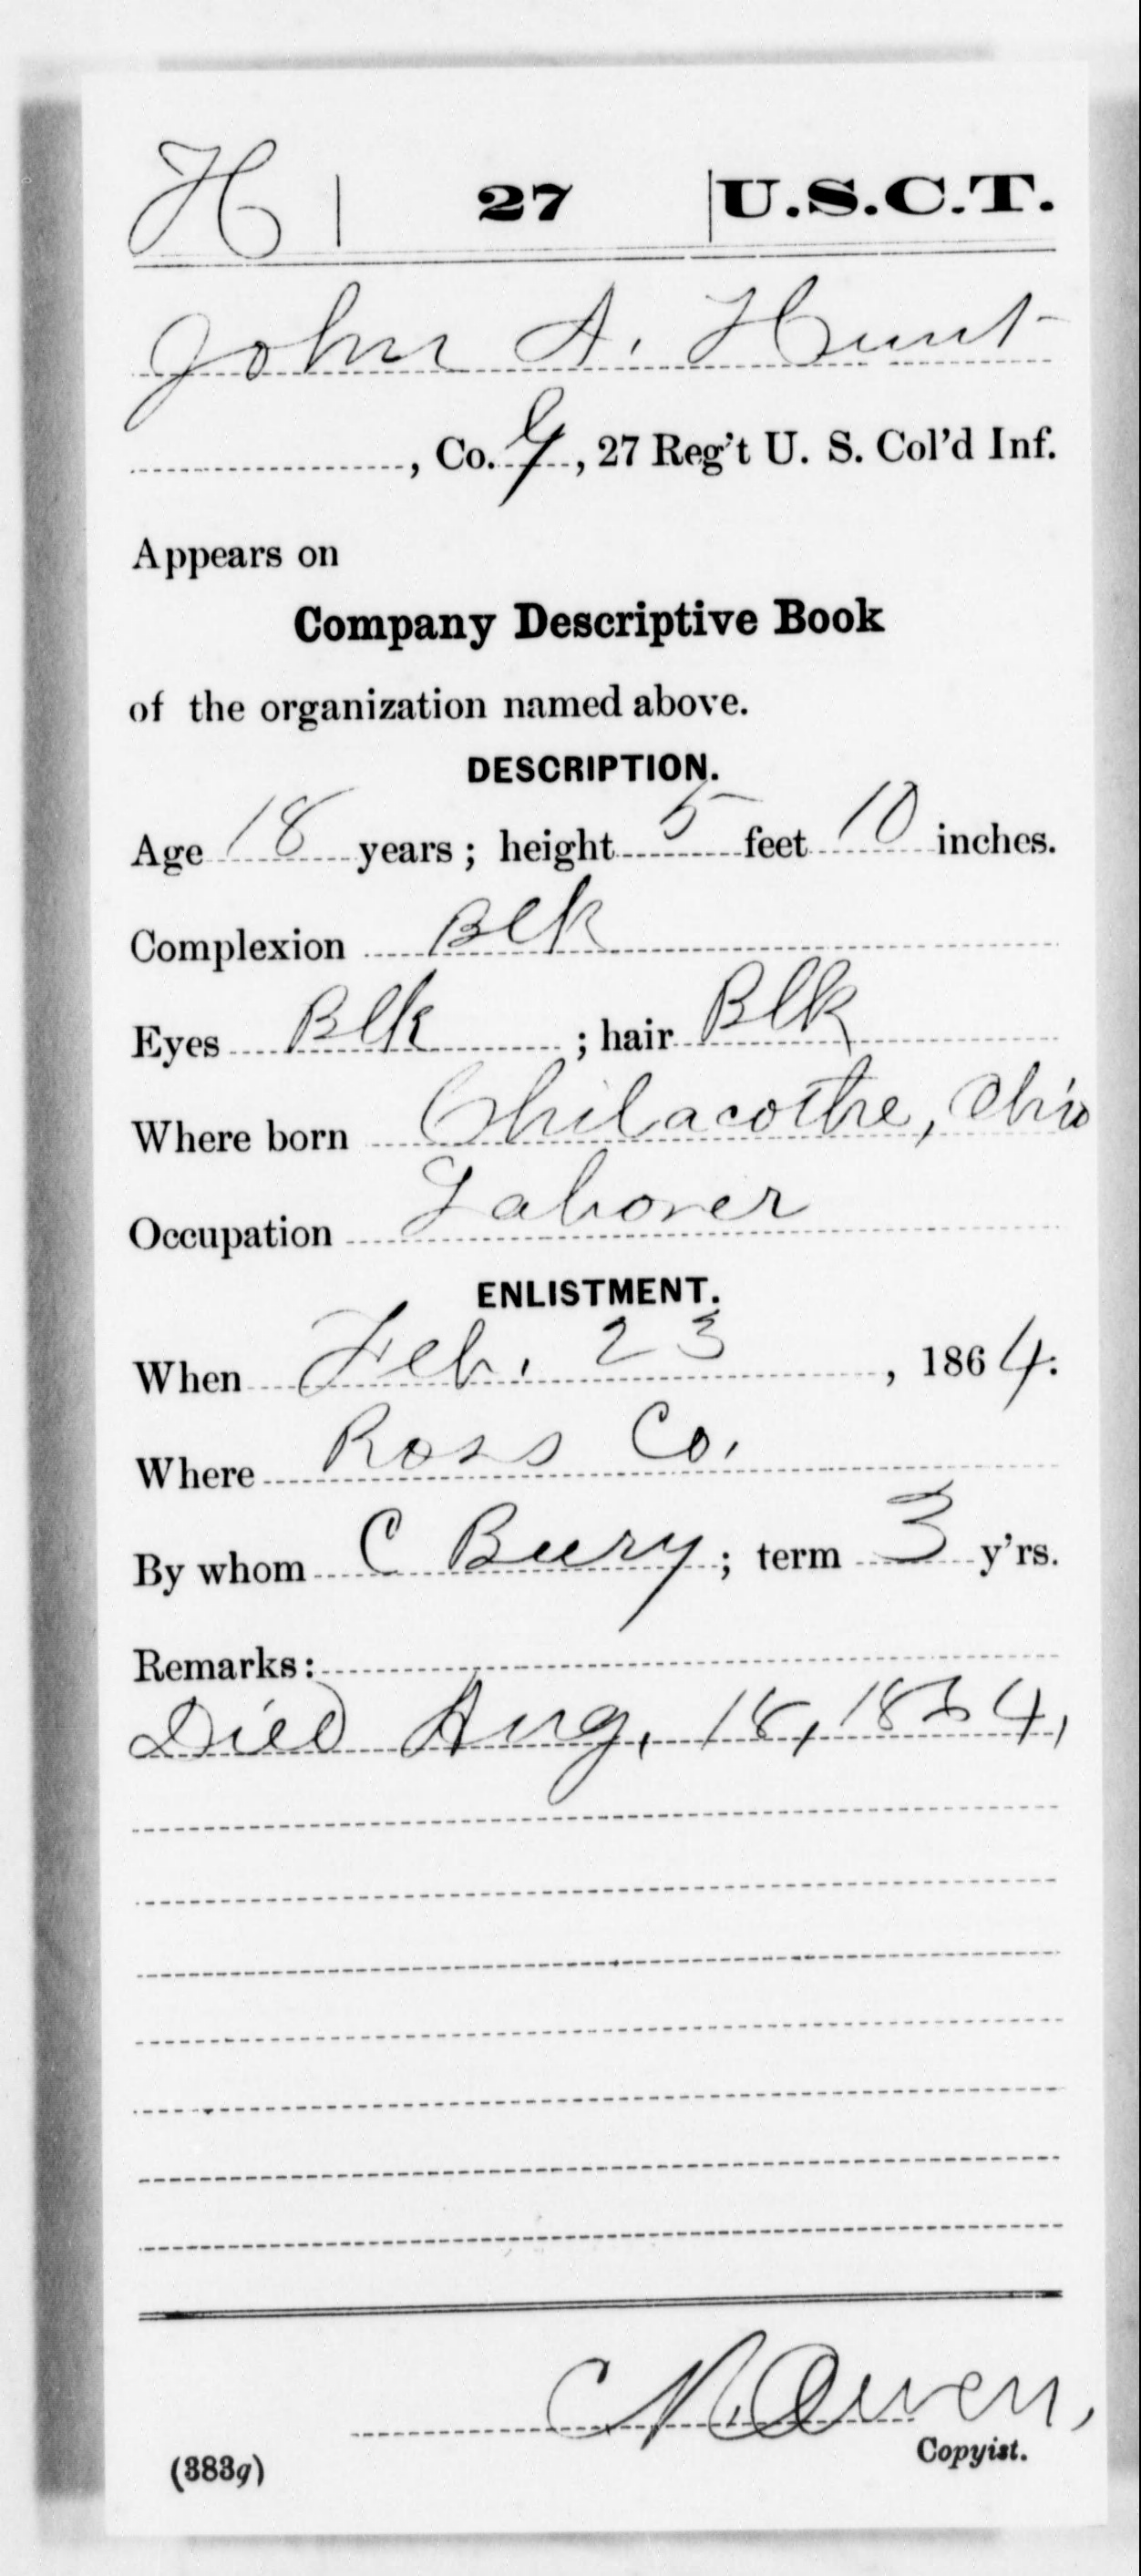 H | 27 | U.S.C.T.
John A. Hunt
, Co. G, 27 Reg't U. S. Col'd Inf.
Appears on
Company Descriptive Book
of the organization named above.
DESCRIPTION.
Age 18 years; height 5 feet 10 inches.
Complexion Blk
Eyes Blk ; hair Blk
Where born Chilacothe, Ohio
Occupation Laborer
ENLISTMENT.
When Feb. 23, 1864.
Where Ross Co.
By whom C Bury; term 3 y'rs.
Remarks:
Died Aug. 18, 1864,
C Owen,
Copyist.
(383g)